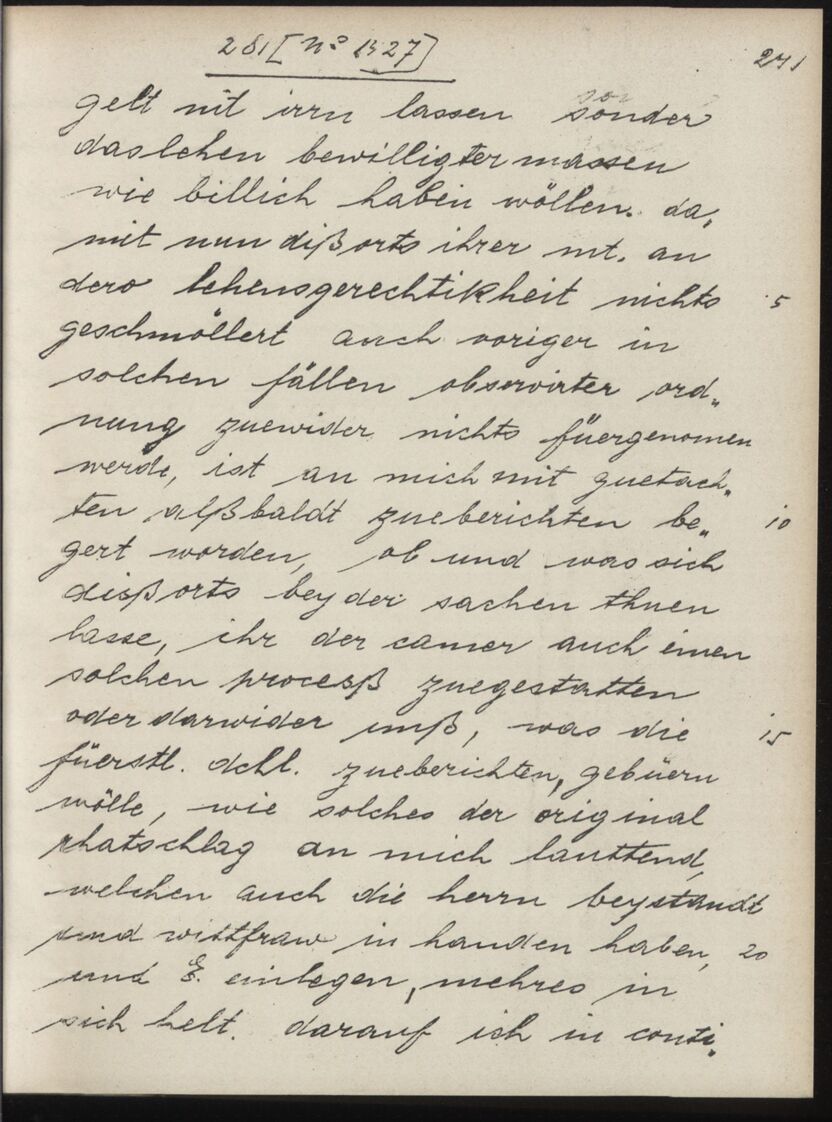 281 [Nº 1327]
271
gelt nit irrn lassen sonder
das lehen bewilligter massen
wie billich haben wöllen. da„
mit nun dißorts ihrer mt. an
dero lehensgerechtikheit nichts 5
geschmöllert auch voriger in
solchen fällen observirter ord„
nung zuewider nichts füergenomen
werde, ist an mich mit guetach„
ten alßbaldt zueberichten be„ 10
gert worden, ob und was sich
dißorts bey der sachen thuen
lasse, ihr der camer auch einen
solchen proceß zuegestatten
oder darwider umß, was die 15
füerstl. dchl. zueberichten, gebüern
wölle, wie solches der original
rhatschlag an mich lauttend,
welchen auch die herrn beystandt
und wittfraw in handen haben, 20
und E. einlegen, mehres in
sich helt. darauf ich in conti„